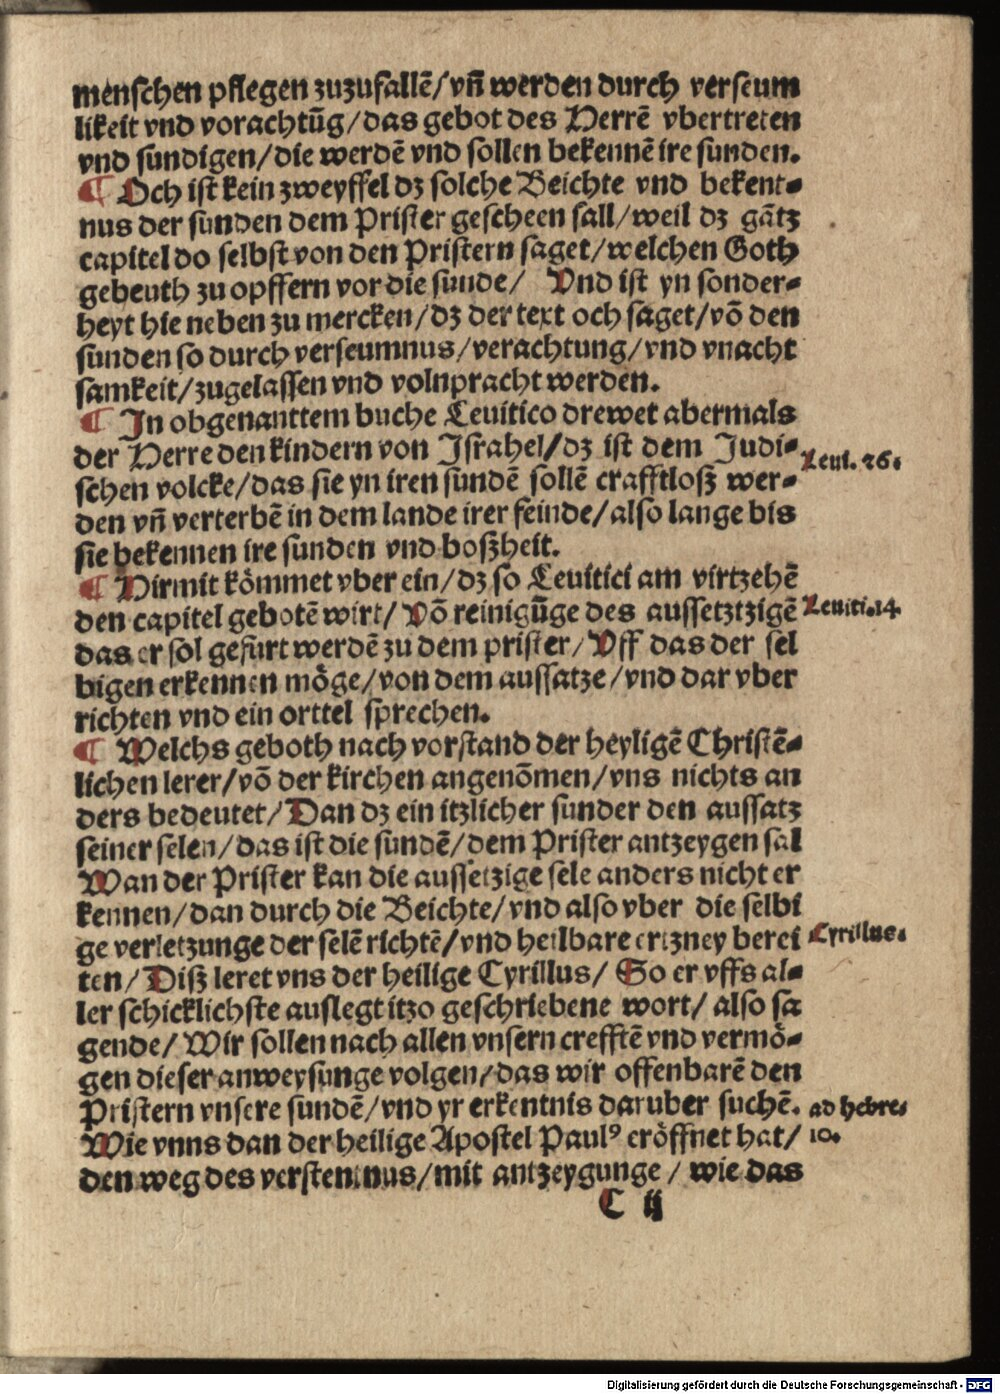 menschen pflegen zuzufallē/vñ werden durch verseum
likeit vnd vorachtūg/das gebot des Herrē vbertreten
vnd sundigen/die werdē vnd sollen bekennē ire sunden.
¶ Och ist kein zweyffel dz solche Beichte vnd bekent⸗
nus der sunden dem Prister gescheen sall/weil dz gātz
capitel do selbst von den Pristern saget/welchen Goth
gebeuth zu opffern vor die sunde/ Vnd ist yn sonder⸗
heyt hie neben zu mercken/dz der text och saget/vō den
sunden so durch verseumnus/verachtung/vnd vnacht
samkeit/zugelassen vnd volnpracht werden.
¶ In obgenanttem buche Leuitico drewet abermals
der Herre den kindern von Israhel/dz ist dem Judi⸗
Leui. 26.
schen volcke/das sie yn iren sundē sollē crafftloß wer⸗
den vñ verterbē in dem lande irer feinde/also lange bis
sie bekennen ire sunden vnd boßheit.
¶ Hirmit kömmet vber ein/dz so Leuitici am virtzehē
den capitel gebotē wirt/ Vō reinigūge des aussetztzigē
Leuiti.14.
das er sol gefurt werdē zu dem prister/ Vff das der sel
bigen erkennen möge/von dem aussatze/vnd dar vber
richten vnd ein orttel sprechen.
¶ Welchs geboth nach vorstand der heyligē Christē⸗
lichen lerer/vō der kirchen angenōmen/vns nichts an
ders bedeutet/Dan dz ein itzlicher sunder den aussatz
seiner selen/das ist die sundē/dem Prister antzeygen sal
Wan der Prister kan die aussetzige sele anders nicht er
kennen/dan durch die Beichte/vnd also vber die selbi
ge verletzunge der selē richtē/vnd heilbare ertzney berei
Cyrillus.
ten/Diß leret vns der heilige Cyrillus/ So er vffs al⸗
ler schicklichste auslegt itzo geschriebene wort/ also sa
gende/ Wir sollen nach allen vnsern crefftē vnd vermö⸗
gen dieser anweysunge volgen/das wir offenbarē den
Pristern vnsere sundē/vnd yr erkentnis daruber suchē.
ad hebre.
10.
Wie vnns dan der heilige Apostel Paulꝰ eröffnet hat/
den weg des verstentnus/mit antzeygunge / wie das
C ij
Digitalisierung gefördert durch die Deutsche Forschungsgemeinschaft - DFG